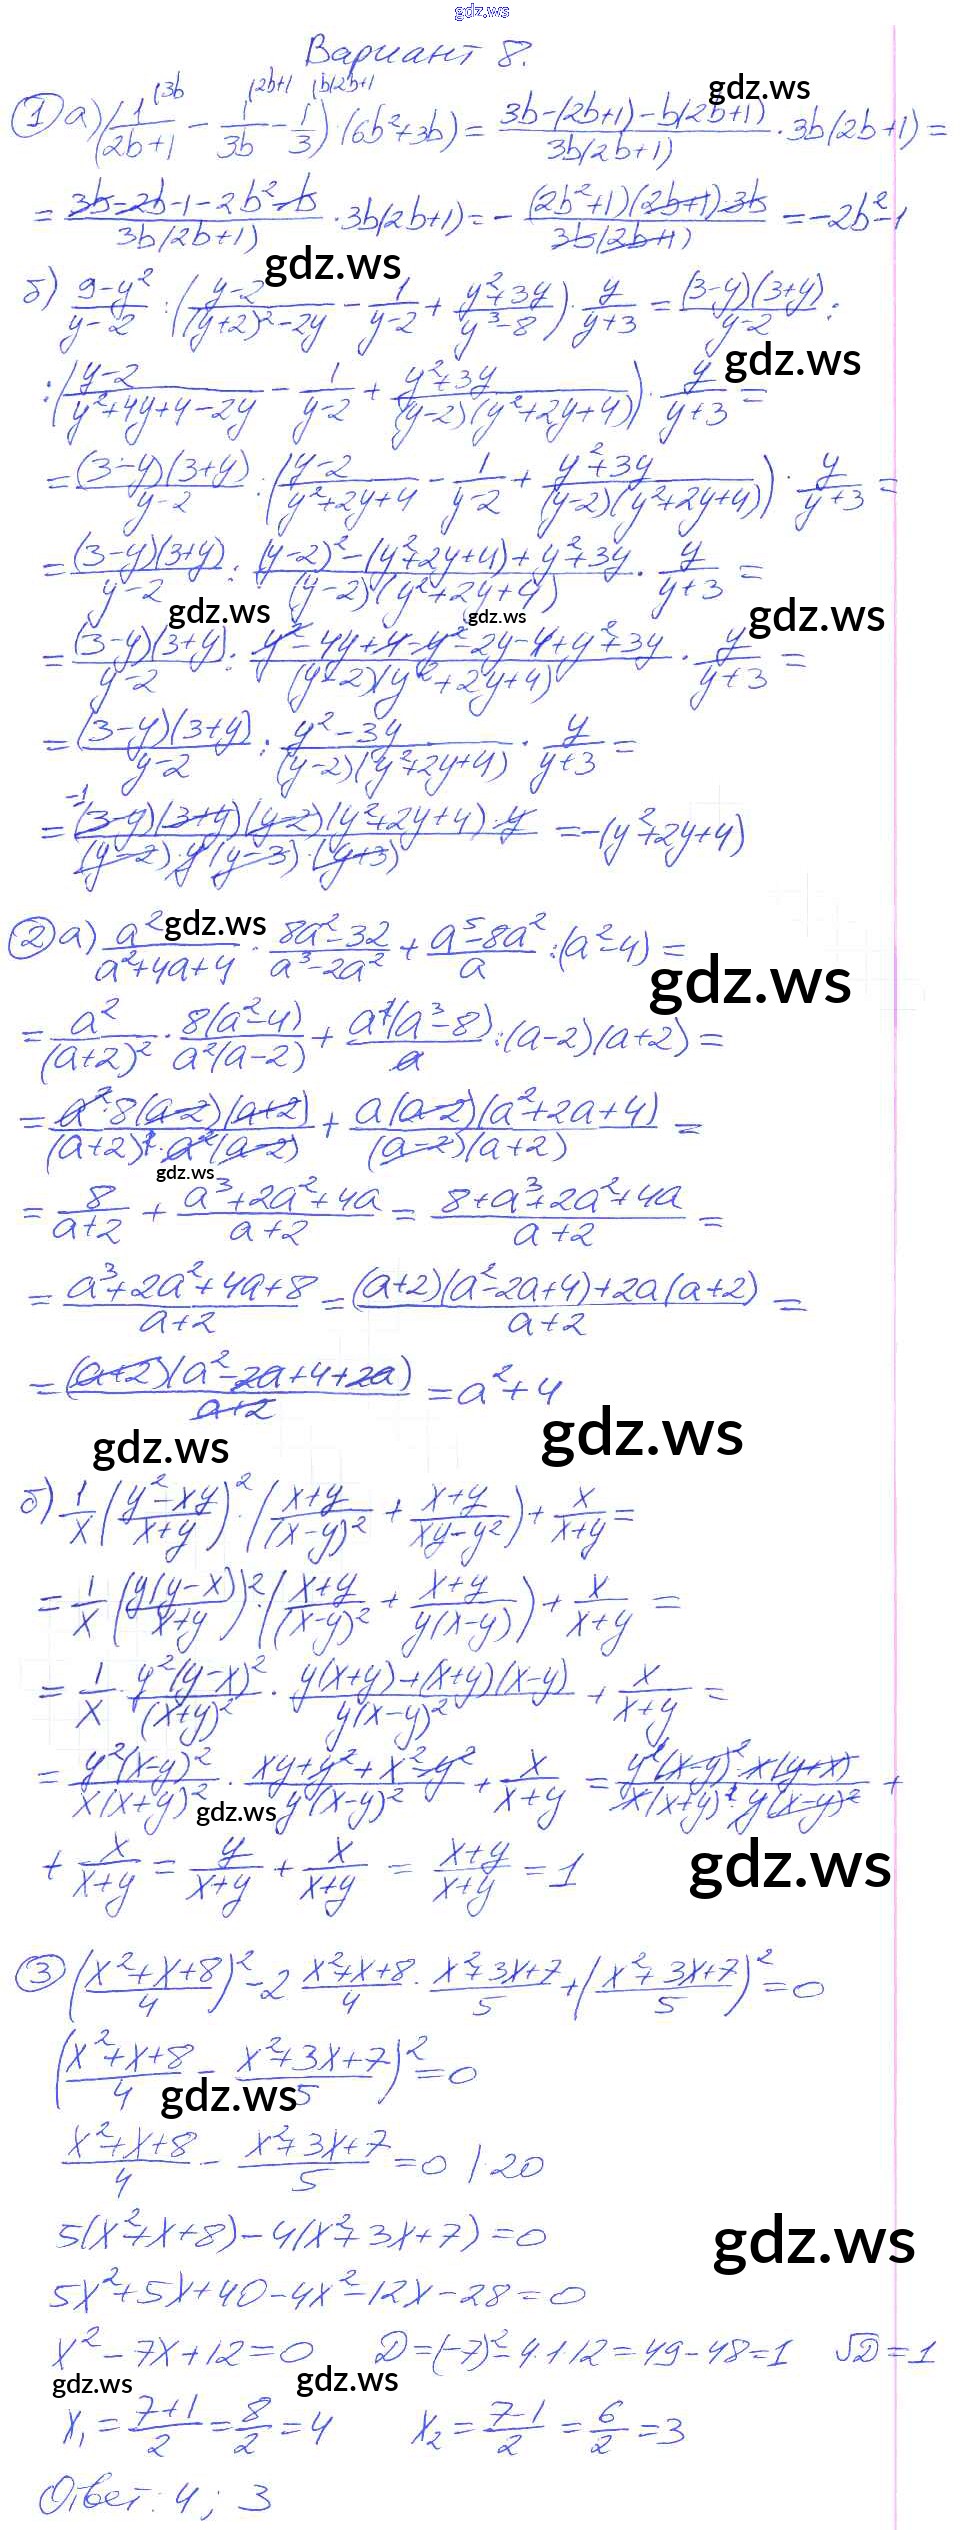 gdz.ws
Вариант 8.
gdz.ws
① а) (1/(2b+1) − 1/3b − 1/3)·(6b²+3b) = (3b−(2b+1)−b(2b+1))/(3b(2b+1)) · 3b(2b+1) =
= (3b−2b−1−2b²−b)/(3b(2b+1)) · 3b(2b+1) = −((2b²+1)(2b+1)·3b)/(3b(2b+1)) = −2b²−1
gdz.ws
б) (9−y²)/(y−2) : ((y−2)/((y+2)²−2y) − 1/(y−2) + (y²+3y)/(y³−8)) · y/(y+3) = ((3−y)(3+y))/(y−2) :
gdz.ws
: ((y−2)/(y²+4y+4−2y) − 1/(y−2) + (y²+3y)/((y−2)(y²+2y+4))) · y/(y+3) =
= ((3−y)(3+y))/(y−2) : ((y−2)/(y²+2y+4) − 1/(y−2) + (y²+3y)/((y−2)(y²+2y+4))) · y/(y+3) =
= ((3−y)(3+y))/(y−2) : ((y−2)²−(y²+2y+4)+y²+3y)/((y−2)(y²+2y+4)) · y/(y+3) =
gdz.ws gdz.ws gdz.ws
= ((3−y)(3+y))/(y−2) : (y²−4y+4−y²−2y−4+y²+3y)/((y−2)(y²+2y+4)) · y/(y+3) =
= ((3−y)(3+y))/(y−2) : (y²−3y)/((y−2)(y²+2y+4)) · y/(y+3) =
= ((3−y)(3+y)(y−2)(y²+2y+4)·y)/((y−2)·y(y−3)·(y+3)) = −(y²+2y+4)
gdz.ws
② а) a²/(a²+4a+4) · (8a²−32)/(a³−2a²) + (a⁵−8a²)/a : (a²−4) =
gdz.ws
= a²/(a+2)² · 8(a²−4)/(a²(a−2)) + a²(a³−8)/a : (a−2)(a+2) =
= (a²·8(a−2)(a+2))/((a+2)²·a²(a−2)) + (a(a−2)(a²+2a+4))/((a−2)(a+2)) =
gdz.ws
= 8/(a+2) + (a³+2a²+4a)/(a+2) = (8+a³+2a²+4a)/(a+2) =
= (a³+2a²+4a+8)/(a+2) = ((a+2)(a²−2a+4)+2a(a+2))/(a+2) =
= ((a+2)(a²−2a+4+2a))/(a+2) = a²+4
gdz.ws gdz.ws
б) 1/x ((y²−xy)/(x+y))² · ((x+y)/(x−y)² + (x+y)/(xy−y²)) + x/(x+y) =
= 1/x (y(y−x)/(x+y))² · ((x+y)/(x−y)² + (x+y)/(y(x−y))) + x/(x+y) =
= 1/x · y²(y−x)²/(x+y)² · (y(x+y)+(x+y)(x−y))/(y(x−y)²) + x/(x+y) =
= y²(x−y)²/(x(x+y)²) · (xy+y²+x²−y²)/(y(x−y)²) + x/(x+y) = (y²(x−y)²·x(y+x))/(x(x+y)²·y(x−y)²) +
gdz.ws
+ x/(x+y) = y/(x+y) + x/(x+y) = (x+y)/(x+y) = 1
gdz.ws
③ ((x²+x+8)/4)² − 2 (x²+x+8)/4 · (x²+3x+7)/5 + ((x²+3x+7)/5)² = 0
((x²+x+8)/4 − (x²+3x+7)/5)² = 0
gdz.ws
(x²+x+8)/4 − (x²+3x+7)/5 = 0 |·20
5(x²+x+8)−4(x²+3x+7) = 0
gdz.ws
5x²+5x+40−4x²−12x−28 = 0
x²−7x+12 = 0 D = (−7)²−4·1·12 = 49−48 = 1 √D = 1
gdz.ws gdz.ws
x₁ = (7+1)/2 = 8/2 = 4 x₂ = (7−1)/2 = 6/2 = 3
Ответ: 4; 3